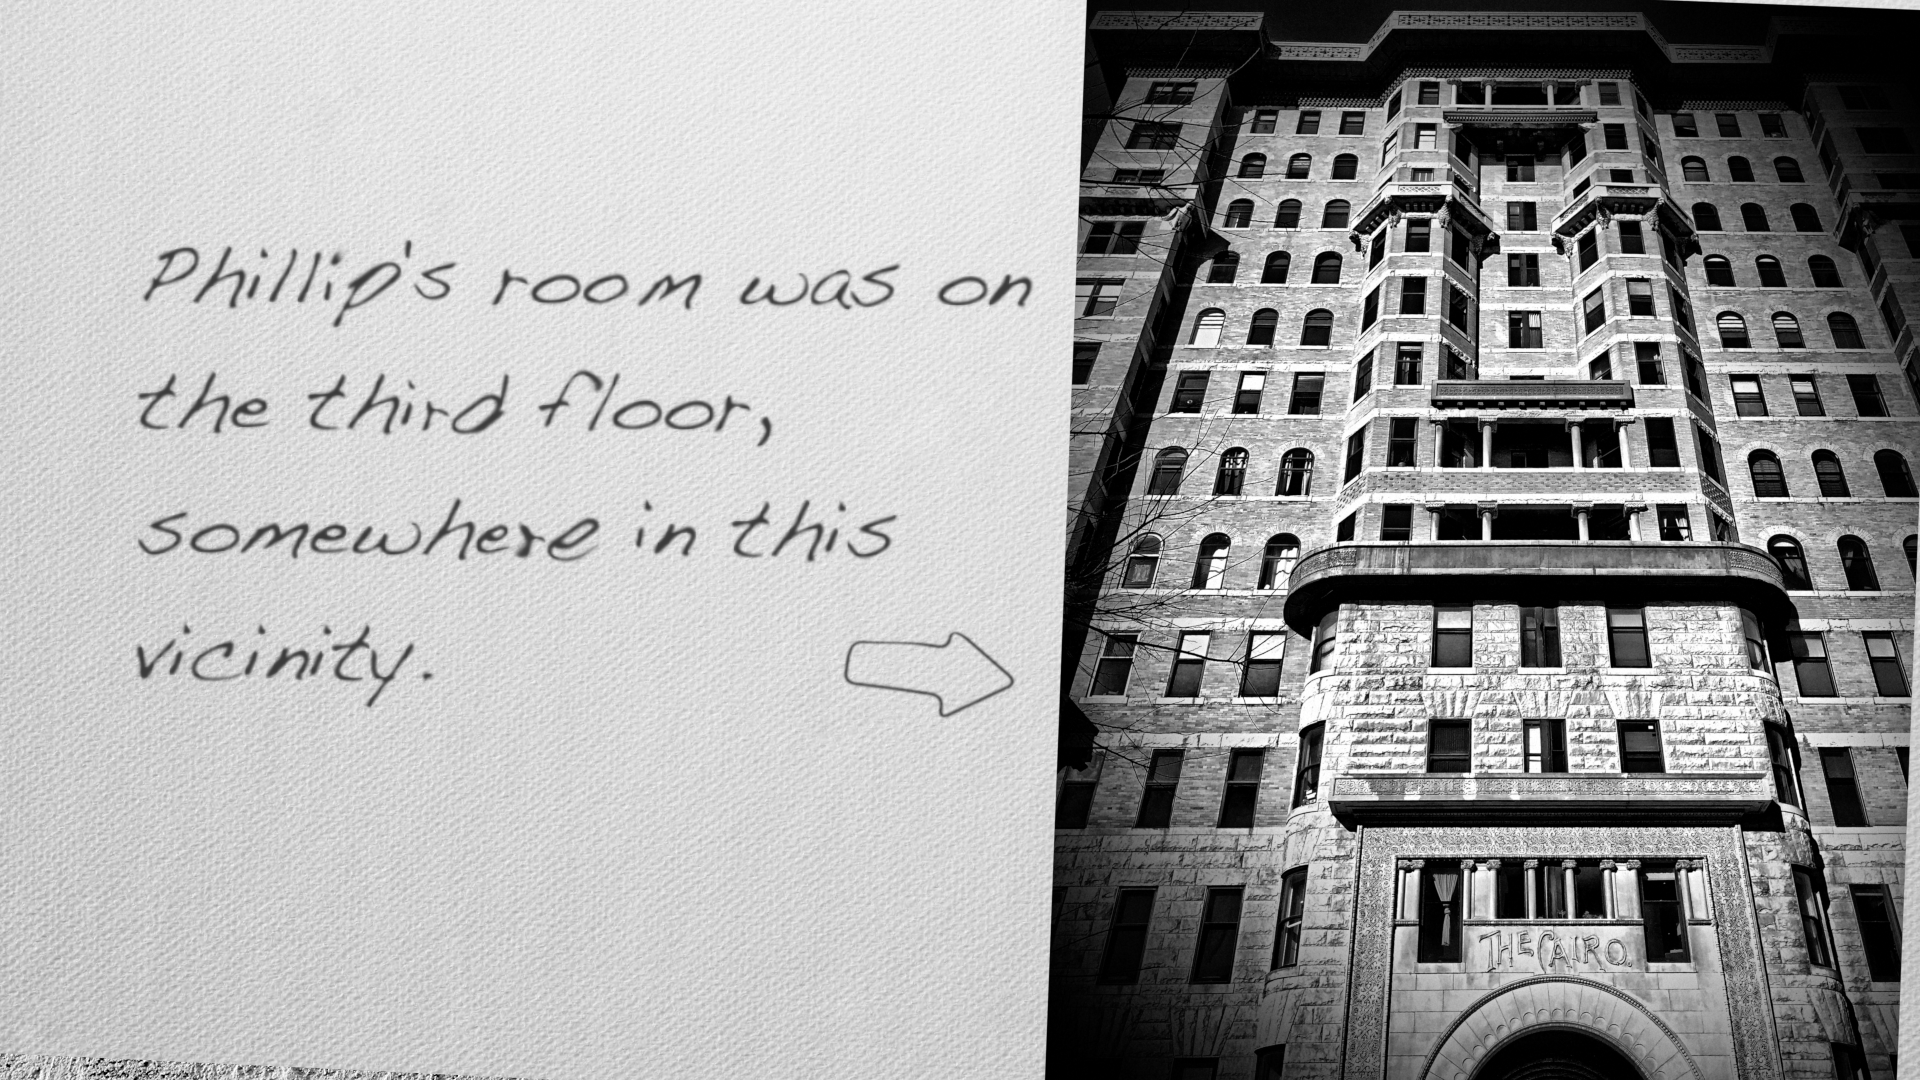 Phillip's room was on
the third floor,
somewhere in this
vicinity.
THE CAIRO.